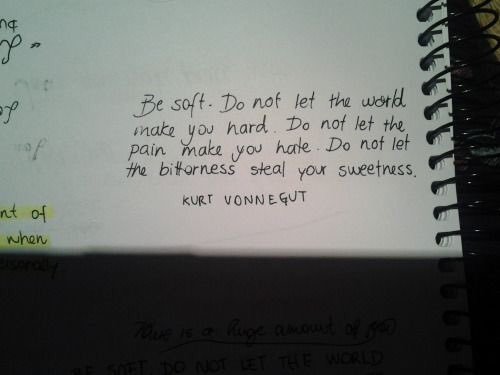 Be soft. Do not let the world
make you hard. Do not let the
pain make you hate. Do not let
the bitterness steal your sweetness.
KURT VONNEGUT
nt of
when
There is a huge amount of
BE SOFT. DO NOT LET THE WORLD